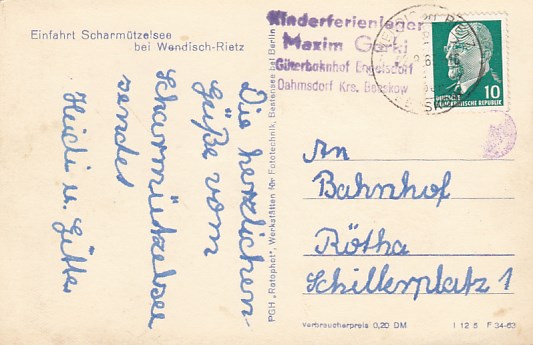 Einfahrt Scharmützelsee
bei Wendisch-Rietz
Die herzlichen
Grüße vom
Scharmützelsee
sendet
Heidi u. Gitta
PGH „Rotophot", Werkstätten für Fototechnik, Bestensee bei Berlin
Kinderferienlager
Maxim Gorki
Güterbahnhof Engelsdorf
Dahmsdorf Krs. Beeskow
10
DEUTSCHE
DEMOKRATISCHE REPUBLIK
An
Bahnhof
Rötha
Schillerplatz 1
Verbraucherpreis 0,20 DM
I 12 5 F 34-63